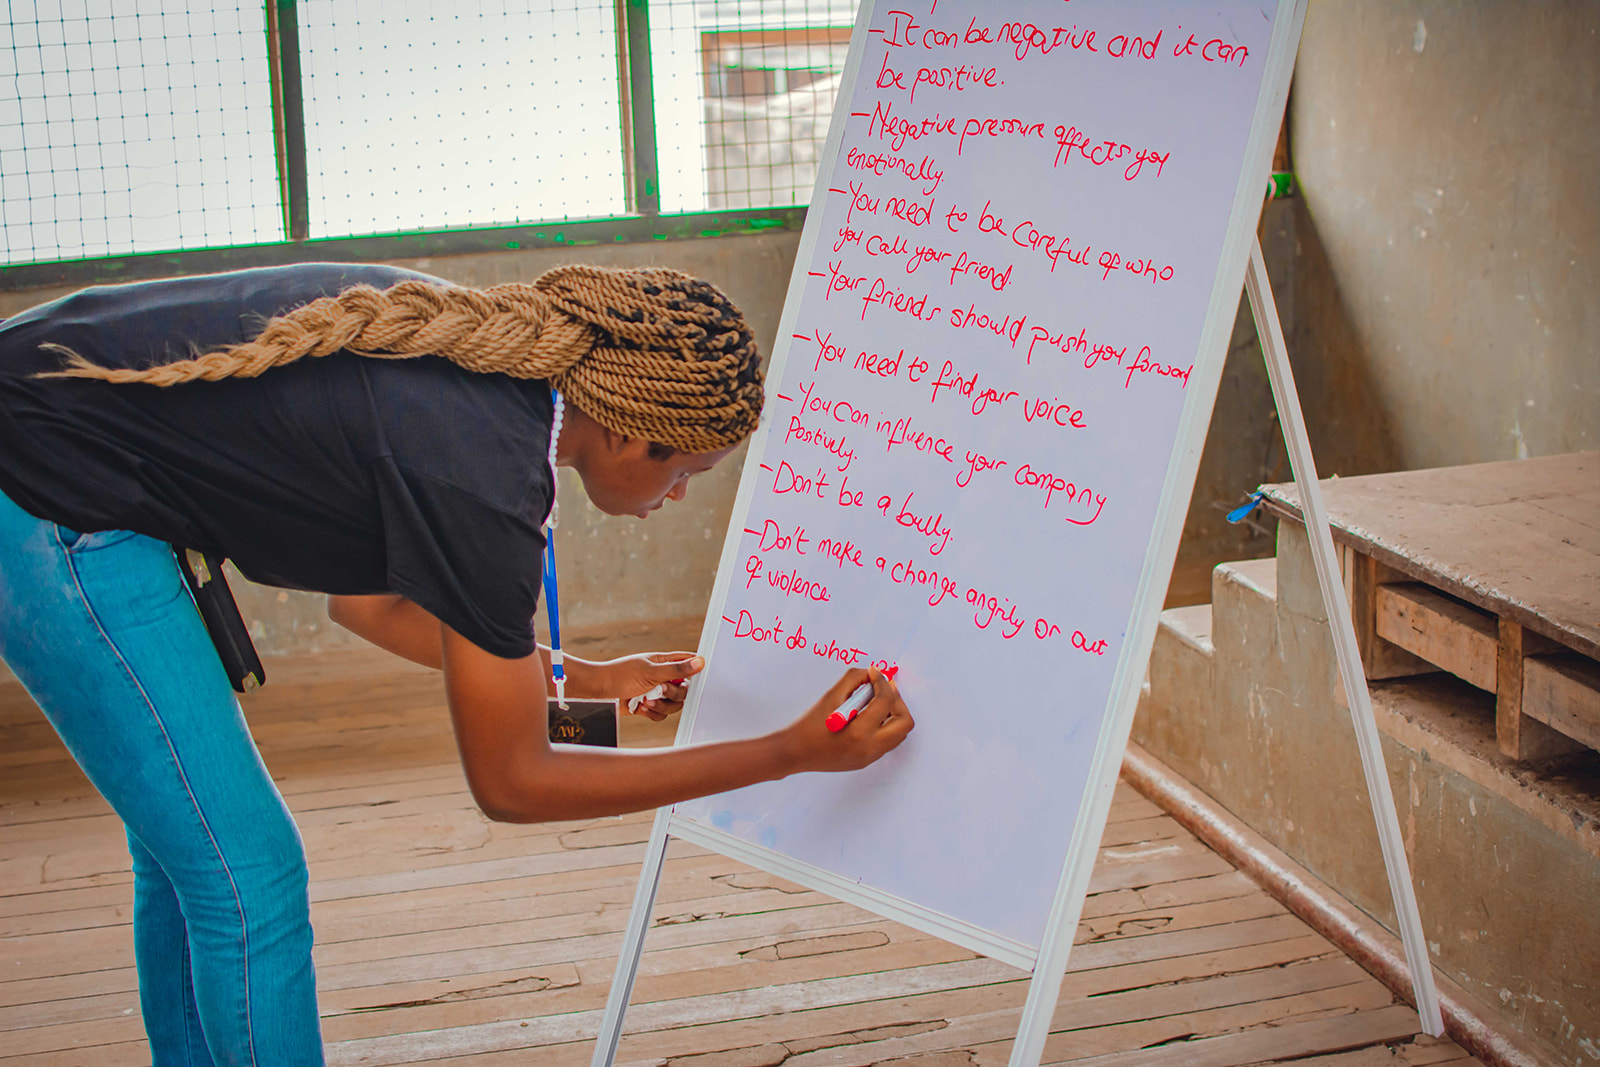 -It can be negative and it can
be positive.
-Negative pressure affects you
emotionally.
-You need to be careful of who
you call your friend.
-Your friends should push you forward
-You need to find your voice
-You can influence your company
Positively.
-Don't be a bully.
-Don't make a change angrily or out
of violence.
-Don't do what